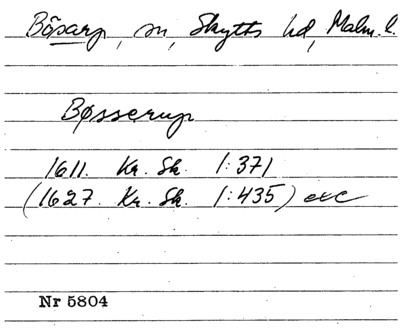 Bösarp, sn, Skytts hd, Malm. l.
Bøsserup
1611. Kr. Sk. 1:371
(1627. Kr. Sk. 1:435) etc
Nr 5804